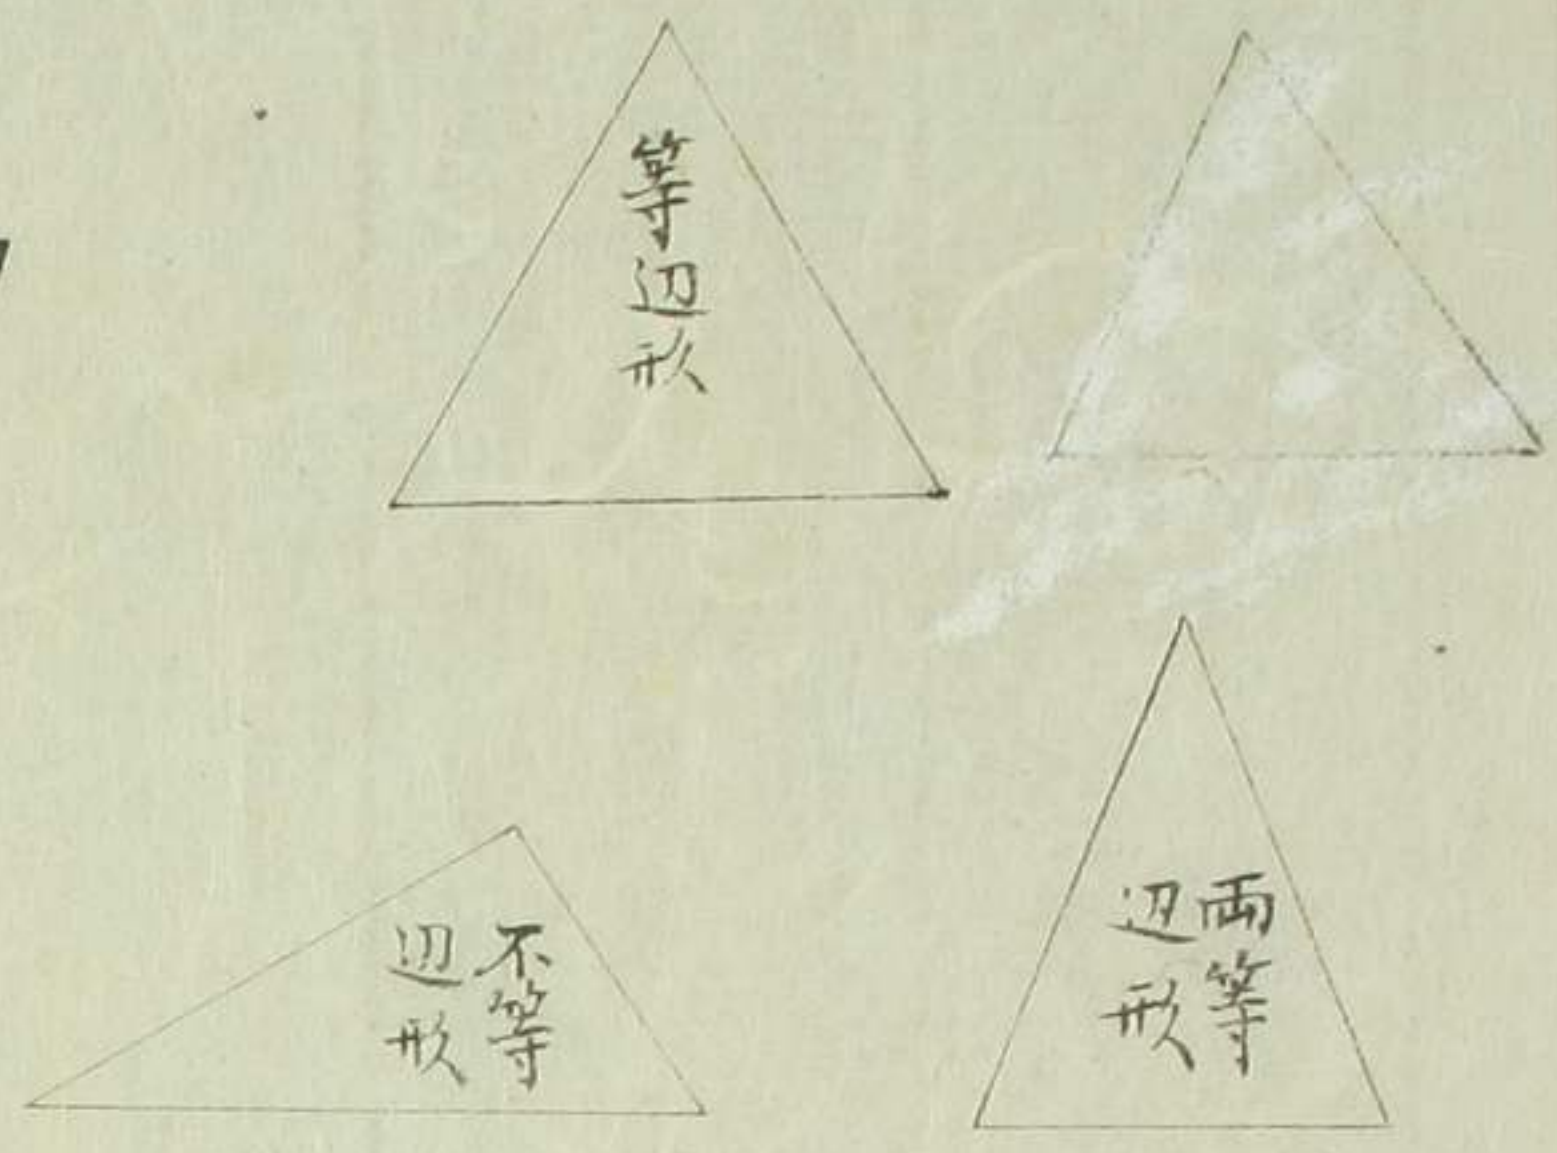 等辺形
両等
辺形
不等
辺形